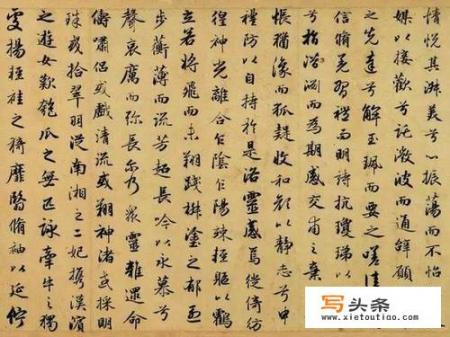 情悦其淑美兮心振蕩而不怡
媒以接歡兮託微波而通辭願
之先達兮解玉珮而要之嗟佳
信脩羌習禮而明詩抗瓊珶以
兮指潛淵而為期感交甫之棄
悵猶豫而狐疑收和顏以靜志兮申
禮防以自持於是洛靈感焉徙倚彷
徨神光離合乍陰乍陽竦輕軀以鶴
立若將飛而未翔踐椒塗之郁烈
步蘅薄而流芳超長吟以永慕兮
聲哀厲而彌長尔乃眾靈雜遝命
儔嘯侶或戲清流或翔神渚或採明
珠或拾翠羽從南湘之二妃攜漢濱
之遊女歎匏瓜之無匹詠牽牛之獨
處揚輕袿之猗靡翳脩袖以延佇
写头条
www.xietoutiao.com